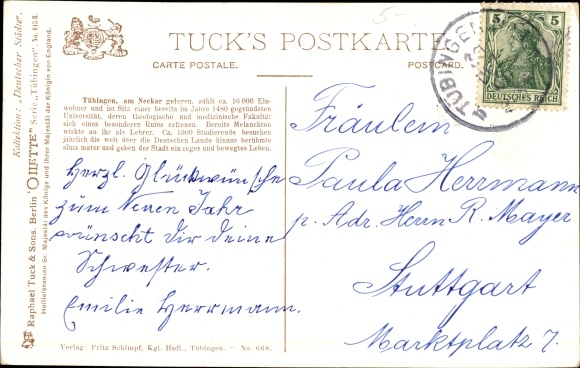 TUCK'S POSTKARTE
CARTE POSTALE. POSTCARD.
Tübingen, am Neckar gelegen, zählt ca. 16 000 Ein-
wohner und ist Sitz einer bereits im Jahre 1480 gegründeten
Universität, deren theologische und medizinische Fakultät
sich eines besonderen Rufes erfreuen. Bereits Melanchton
wirkte an ihr als Lehrer. Ca. 1500 Studierende besuchen
jährlich die weit über die Deutschen Lande hinaus berühmte
alma mater und geben der Stadt ein reges und bewegtes Leben.
Herzl. Glückwünsche
zum Neuen Jahr
wünscht dir deine
Schwester.
Emilie Herrmann.
Verlag: Fritz Schimpf, Kgl. Hofl., Tübingen. – No. 668.
Kollektion: „Deutscher Städte".
Serie „Tübingen" No. 458
Raphael Tuck & Sons. Berlin "OILETTE"
Hoflieferanten Sr. Majestät des Königs und Ihrer Majestät der Königin von England.
5-
5 5
DEUTSCHES REICH
TÜBINGEN
Fräulein
Paula Herrmann
p. Adr. Herrn R. Mayer
Stuttgart
Marktplatz 7.